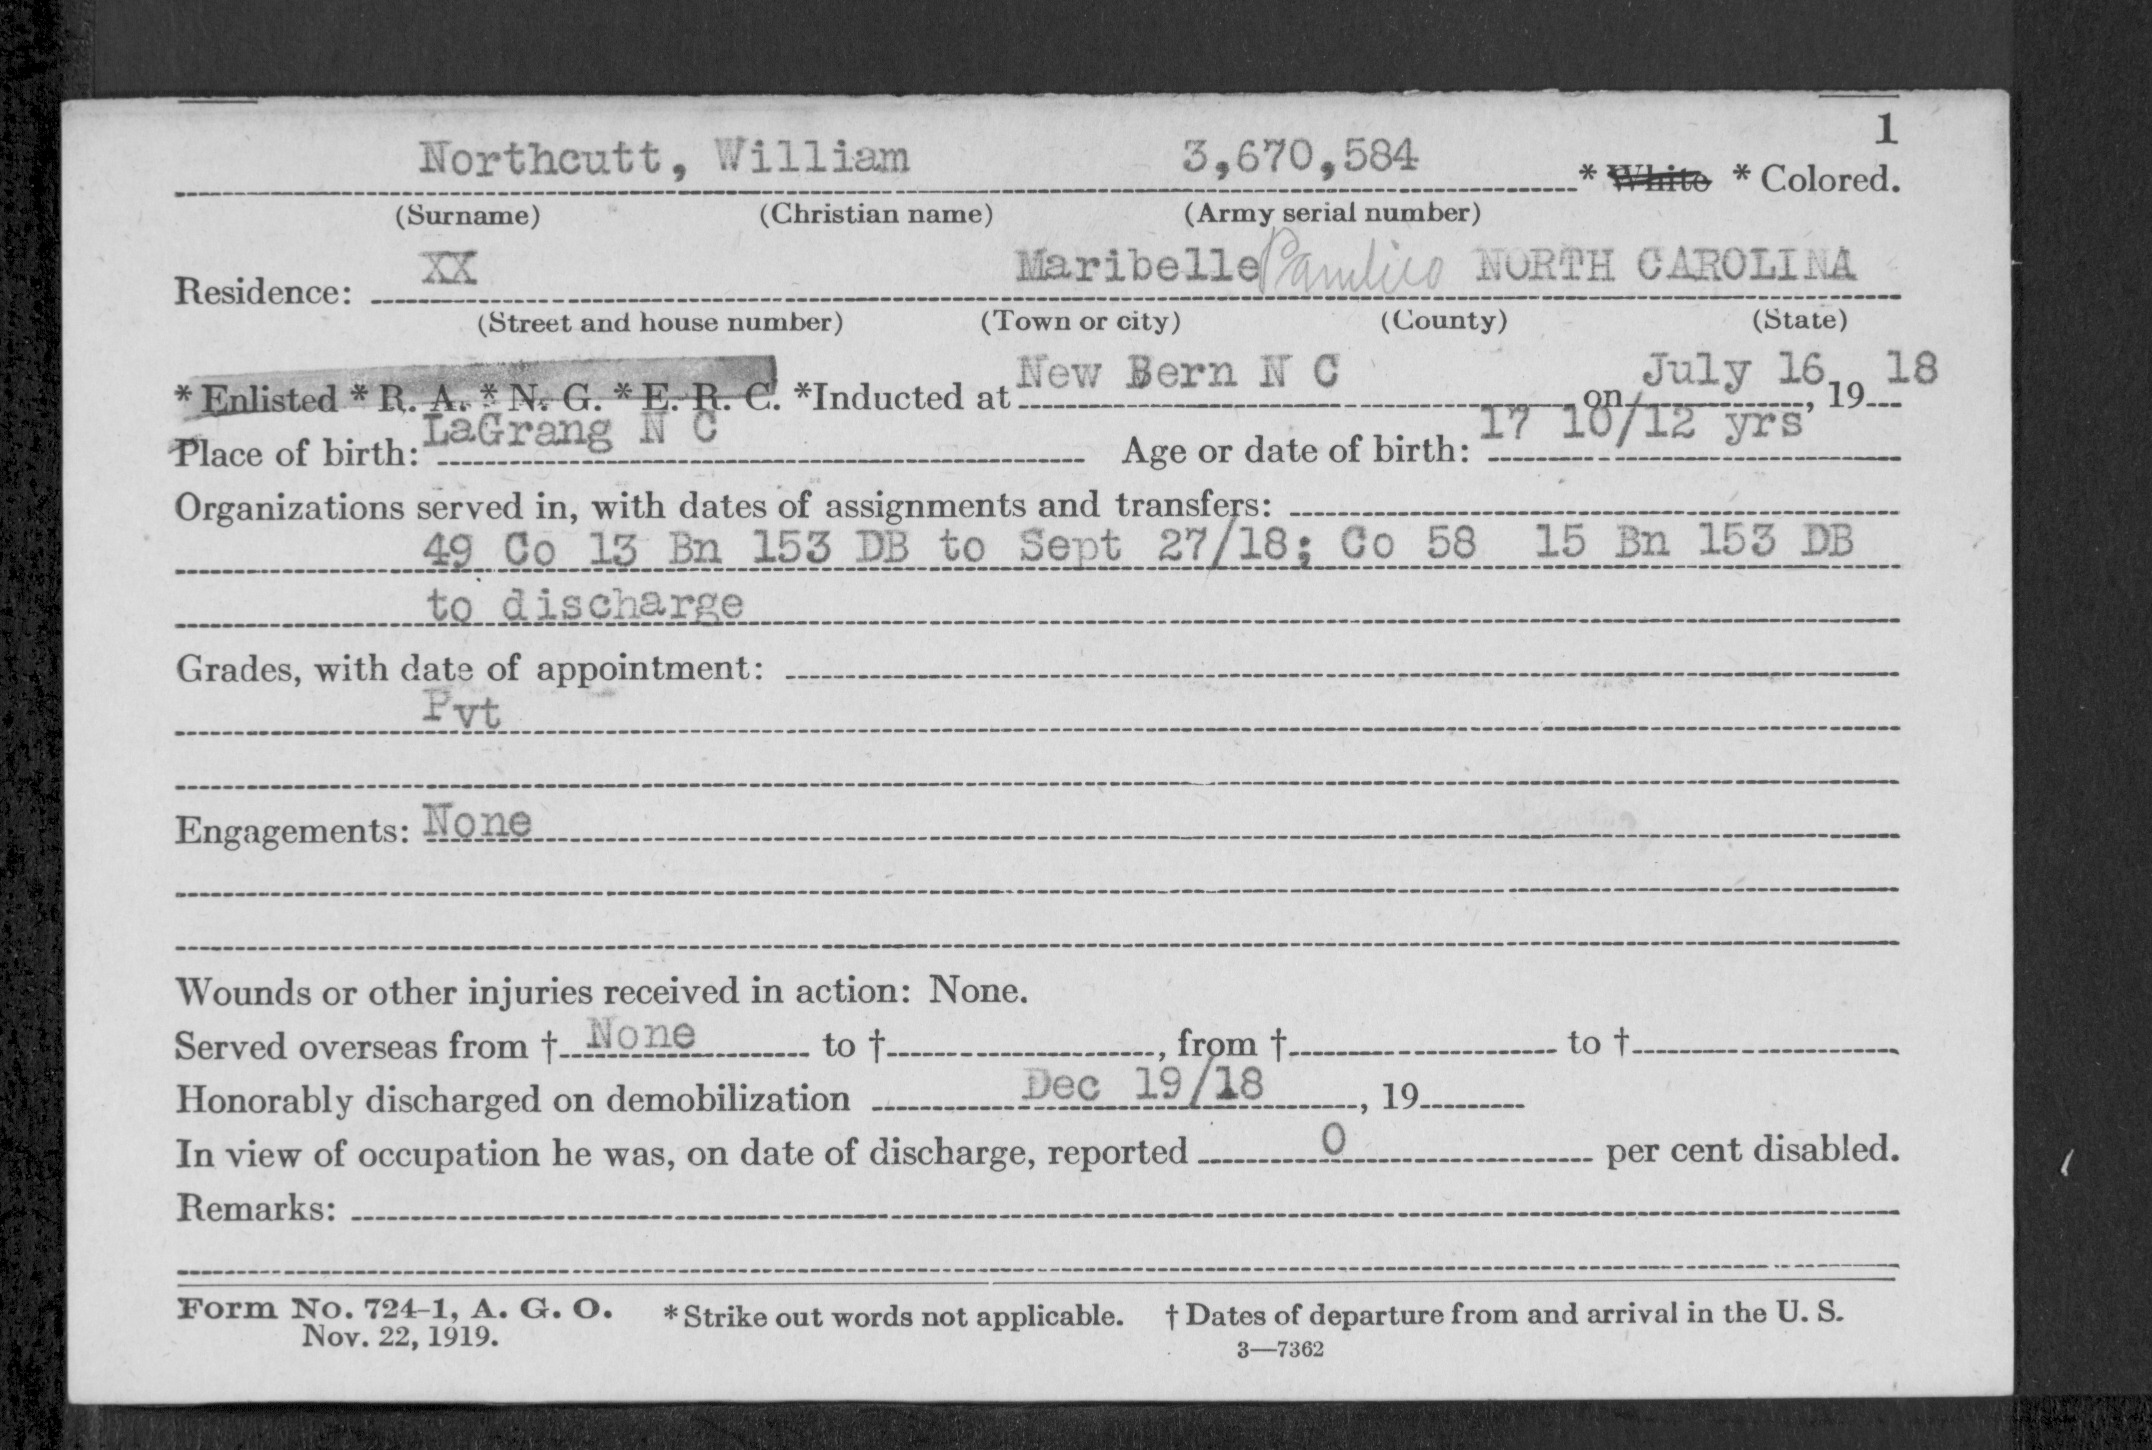 1
Northcutt, William 3,670,584 * White * Colored.
(Surname) (Christian name) (Army serial number)
Residence: XX Maribelle Pamlico NORTH CAROLINA
(Street and house number) (Town or city) (County) (State)
* Enlisted * R. A. * N. G. * E. R. C. *Inducted at New Bern N C on July 16, 19 18
Place of birth: LaGrang N C Age or date of birth: 17 10/12 yrs
Organizations served in, with dates of assignments and transfers:
49 Co 13 Bn 153 DB to Sept 27/18; Co 58 15 Bn 153 DB
to discharge
Grades, with date of appointment:
Pvt
Engagements: None
Wounds or other injuries received in action: None.
Served overseas from † None to †, from † to †
Honorably discharged on demobilization Dec 19/18, 19
In view of occupation he was, on date of discharge, reported 0 per cent disabled.
Remarks:
Form No. 724-1, A. G. O. * Strike out words not applicable. † Dates of departure from and arrival in the U. S.
Nov. 22, 1919. 3—7362